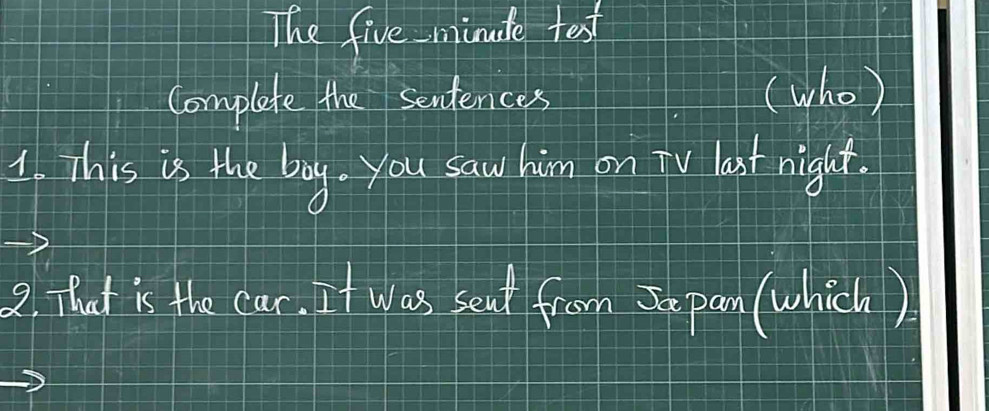 The five-minute test
Complete the sentences (who)
1. This is the boy. You saw him on TV last night.
→
2. That is the car. It was sent from Japan (which)
→